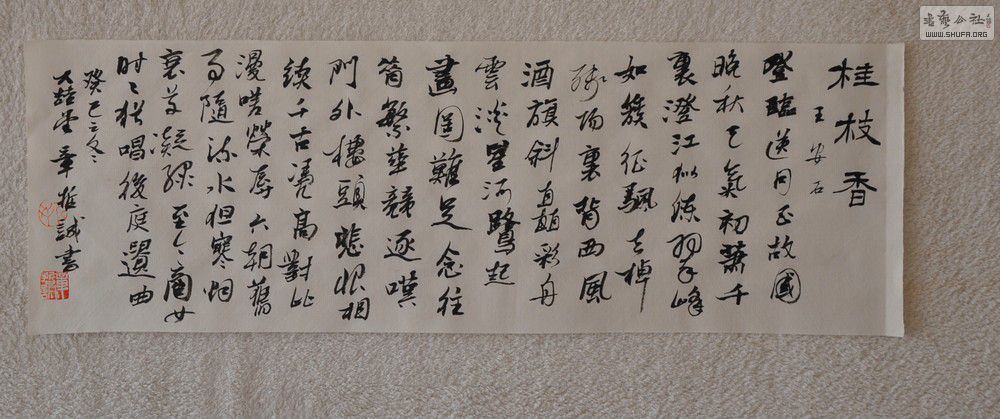 桂枝香
王安石
登臨送目正故國
晚秋天氣初肅千
裏澄江似練翠峰
如簇征颿去棹
殘陽裏背西風
酒旗斜矗彩舟
雲淡星河鷺起
畫圖難足念往
昔繁華競逐嘆
門外樓頭悲恨相
續千古憑高對此
漫嗟榮辱六朝舊
事隨流水但寒烟
衰草凝綠至今商女
时〻猶唱後庭遺曲
癸巳之冬
堂章雅誠書
書藝公社
WWW.SHUFA.ORG